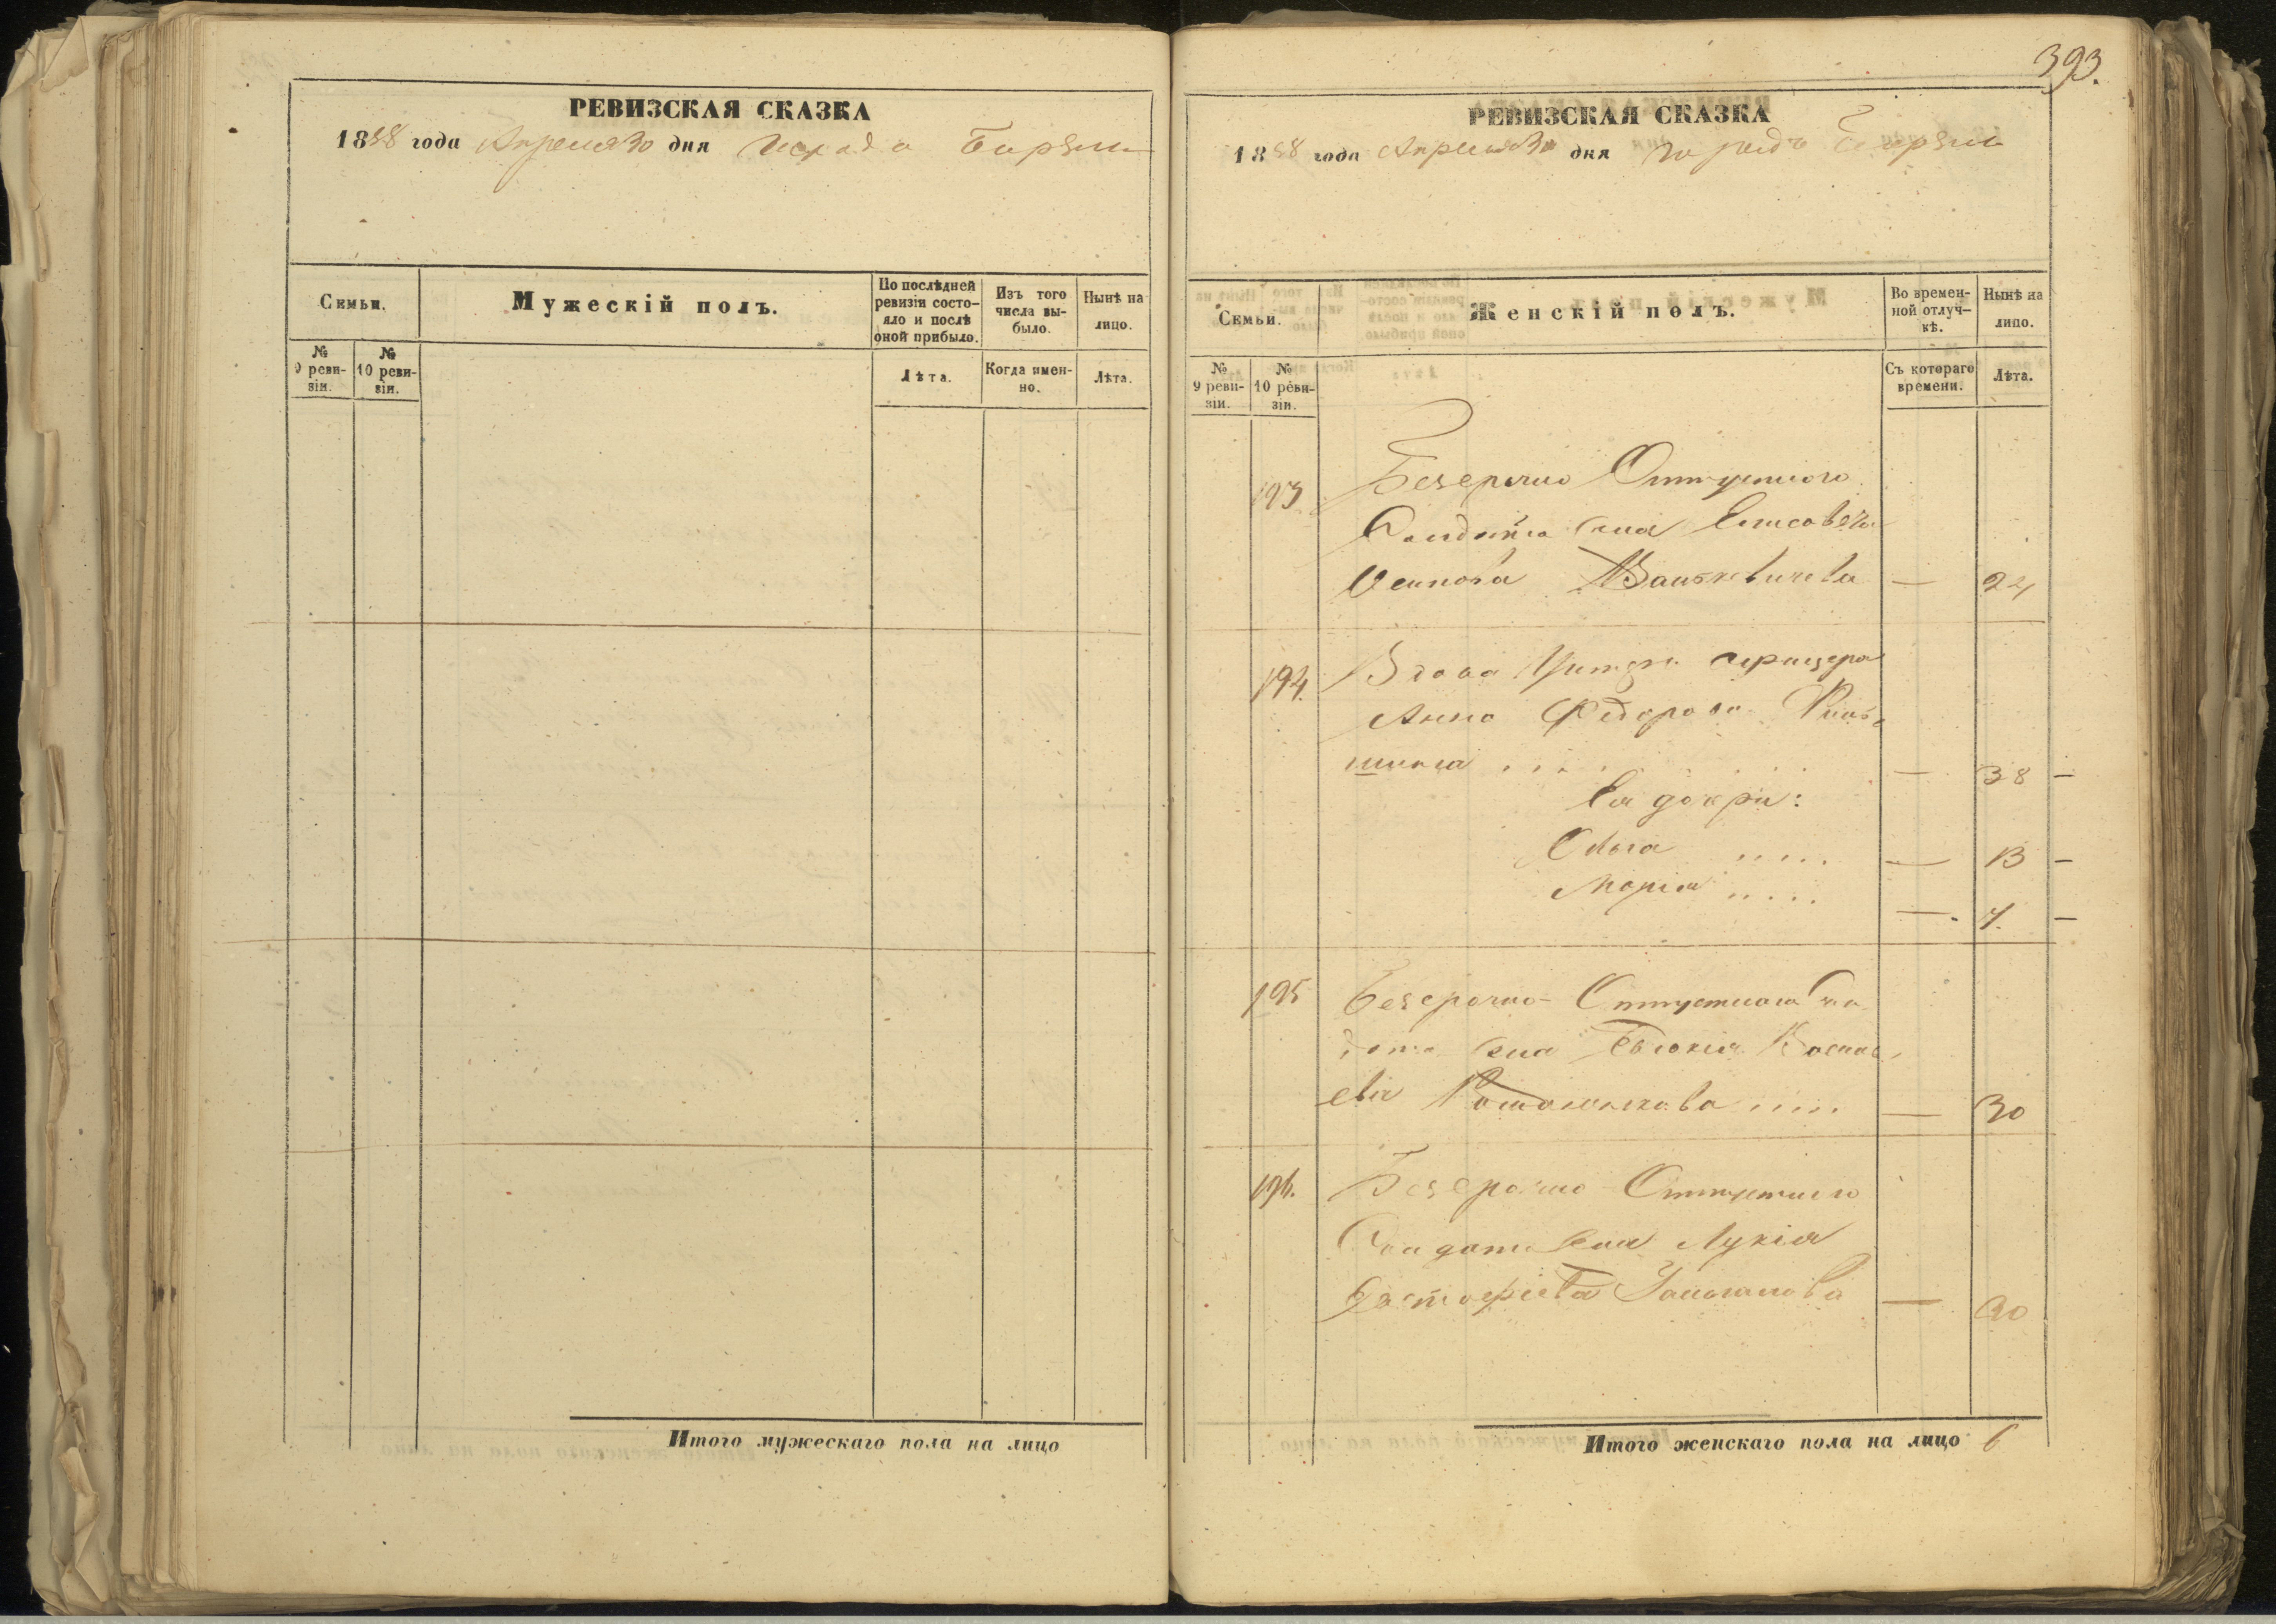 РЕВИЗСКАЯ СКАЗКА
1858 года Апреля 30 дня города
Семьи.
Мужескій полъ.
По послѣдней ревизіи состо-
яло и послѣ
оной прибыло.
Изъ того
числа вы-
было.
Нынѣ на
лицо.
№
9 реви-
зіи.
№
10 реви-
зіи.
Лѣта.
Когда имен-
но.
Лѣта.
Итого мужескаго пола на лицо
393.
РЕВИЗСКАЯ СКАЗКА
1858 года Апреля 30 дня
Семьи.
Женскій полъ.
Во времен-
ной отлуч-
кѣ.
Нынѣ на
лицо.
№
9 реви-
зіи.
№
10 реви-
зіи.
Съ котораго
времени.
Лѣта.
193 Безсрочно Отпускного
Солдата жена Елисавета
Осипова — 24
194. Вдова Унтеръ офицера
Анна Федорова
— 38 —
Ея дочери:
Ольга ..... — 13 —
Марія ..... — 7. —
195 Безсрочно-Отпускного Сол
дата жена Евдокія
..... — 30
196. Безсрочно Отпускного
Солдата жена Лукія
Евстафіева —
Итого женскаго пола на лицо 6